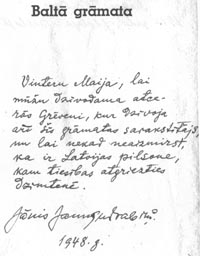 Baltā grāmata
Vinteru Maija, lai
mūžu dzīvodama atce-
rās Grēveni, kur dzīvoja
arī šīs grāmatas sarakstītājs,
un lai nekad neaizmirst,
ka ir Latvijas pilsone,
kam tiesības atgriezties
dzimtenē.
Jānis Jaunsudrabiņš.
1948.g.